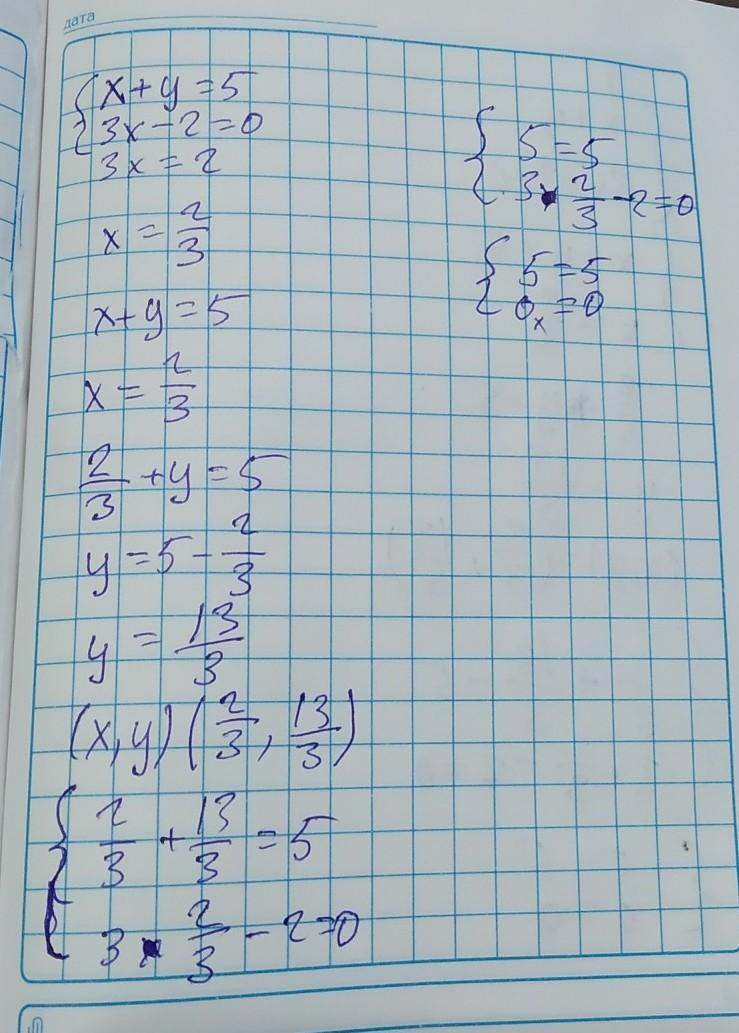 дата
{ x + y = 5
{ 3x - 2 = 0
3x = 2
x = 2/3
x + y = 5
x = 2/3
2/3 + y = 5
y = 5 - 2/3
y = 13/3
(x, y) (2/3, 13/3)
{ 2/3 + 13/3 = 5
{ 3 • 2/3 - 2 = 0
{ 5 = 5
{ 3 • 2/3 - 2 = 0
{ 5 = 5
{ 0x = 0